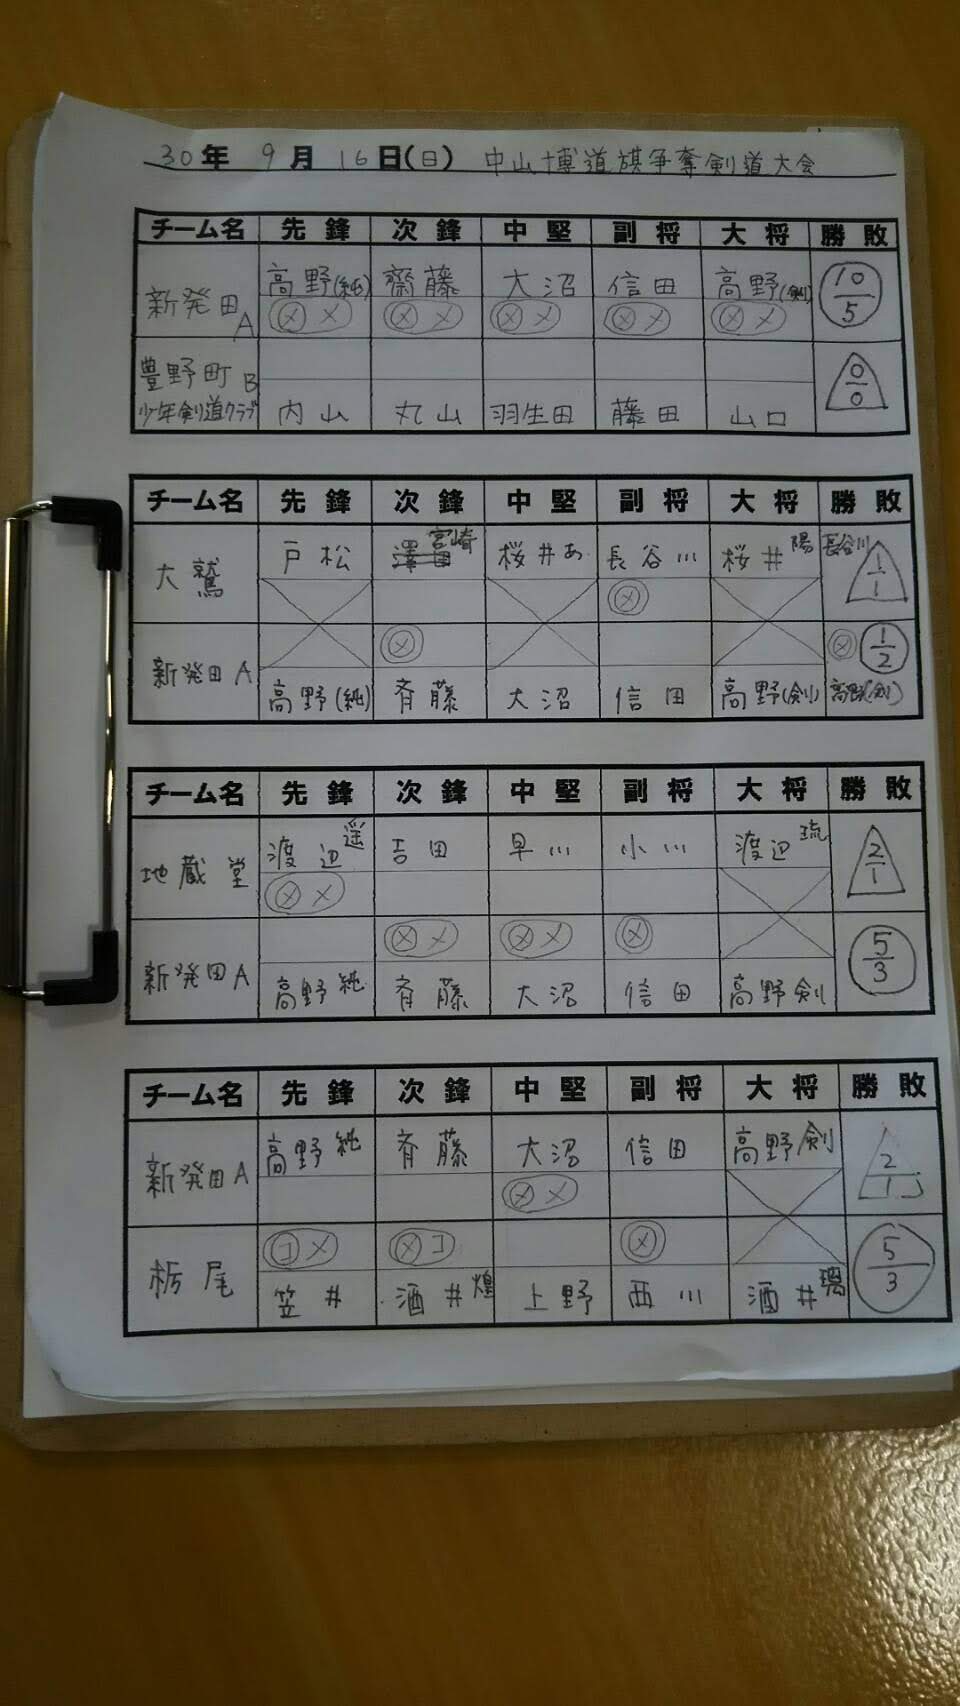 30年 9月 16日(日) 中山博道旗争奪剣道大会
チーム名 先鋒 次鋒 中堅 副将 大将 勝敗
新発田A 高野(純) 齋藤 大沼 信田 高野(剣) 10/5
メメ メメ メメ メメ メメ
豊野町B 0/0
少年剣道クラブ 内山 丸山 羽生田 藤田 山口
チーム名 先鋒 次鋒 中堅 副将 大将 勝敗
大鷲 戸松 宮崎 桜井あ 長谷川 桜井陽 長谷川 1/1
メ
メ メ 1/2
新発田A 高野(純) 斉藤 大沼 信田 高野(剣) 高野(剣)
チーム名 先鋒 次鋒 中堅 副将 大将 勝敗
地蔵堂 渡辺遥 吉田 早川 小川 渡辺琉 2/1
メメ
メメ メメ メ 5/3
新発田A 高野純 斉藤 大沼 信田 高野剣
チーム名 先鋒 次鋒 中堅 副将 大将 勝敗
新発田A 高野純 斉藤 大沼 信田 高野剣 2/1
メメ
コメ メコ メ 5/3
栃尾 笠井 酒井煌 上野 西川 酒井璃